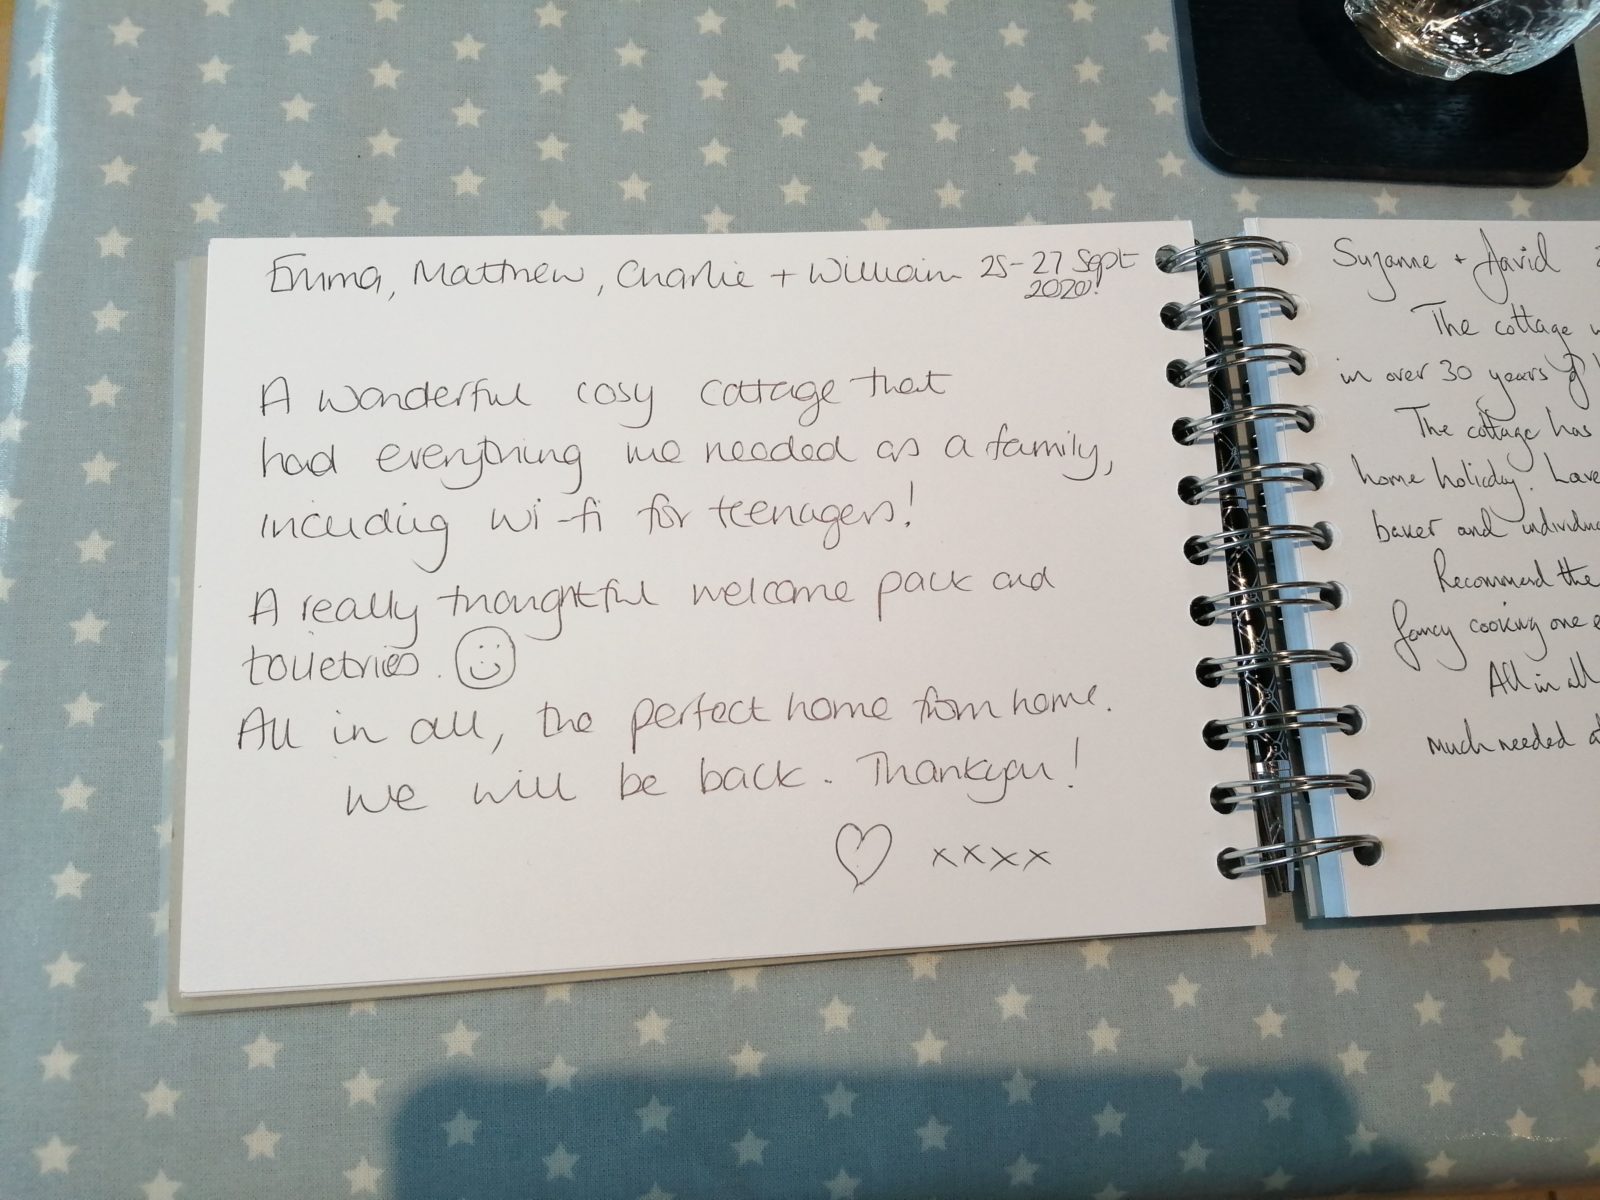 Emma, Matthew, Charlie + William 25-27 Sept
2020!
A wonderful cosy cottage that
had everything we needed as a family,
including wi-fi for teenagers!
A really thoughtful welcome pack and
toiletries.
All in all, the perfect home from home.
We will be back. Thankyou!
xxxx
Suzanne + David
The cottage
in over 30 years
The cottage has
home holiday.
baker and
Recommend the
fancy cooking one
All in all
much needed